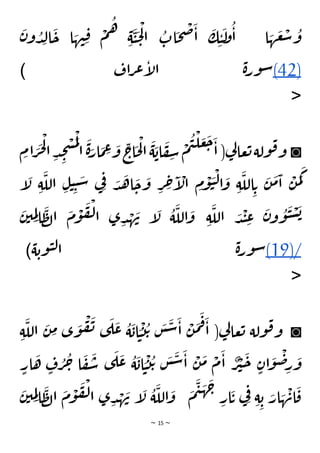 وُسْعَهَا أُولَٰئِكَ أَصْحَابُ الْجَنَّةِ هُمْ فِيهَا خَالِدُونَ
(42) سورة الأعراف )
>
◙ وقوله تعالى( أَجَعَلْتُمْ سِقَايَةَ الْحَاجِّ وَعِمَارَةَ الْمَسْجِدِ الْحَرَامِ
كَمَنْ آمَنَ بِاللَّهِ وَالْيَوْمِ الْآخِرِ وَجَاهَدَ فِي سَبِيلِ اللَّهِ لَا
يَسْتَوُونَ عِنْدَ اللَّهِ وَاللَّهُ لَا يَهْدِي الْقَوْمَ الظَّالِمِينَ
/(19) سورة التوبة)
>
◙ وقوله تعالى( أَفَمَنْ أَسَّسَ بُنْيَانَهُ عَلَى تَقْوَى مِنَ اللَّهِ
وَرِضْوَانٍ خَيْرٌ أَمْ مَنْ أَسَّسَ بُنْيَانَهُ عَلَى شَفَا جُرُفٍ هَارٍ
فَانْهَارَ بِهِ فِي نَارِ جَهَنَّمَ وَاللَّهُ لَا يَهْدِي الْقَوْمَ الظَّالِمِينَ
~ 15 ~